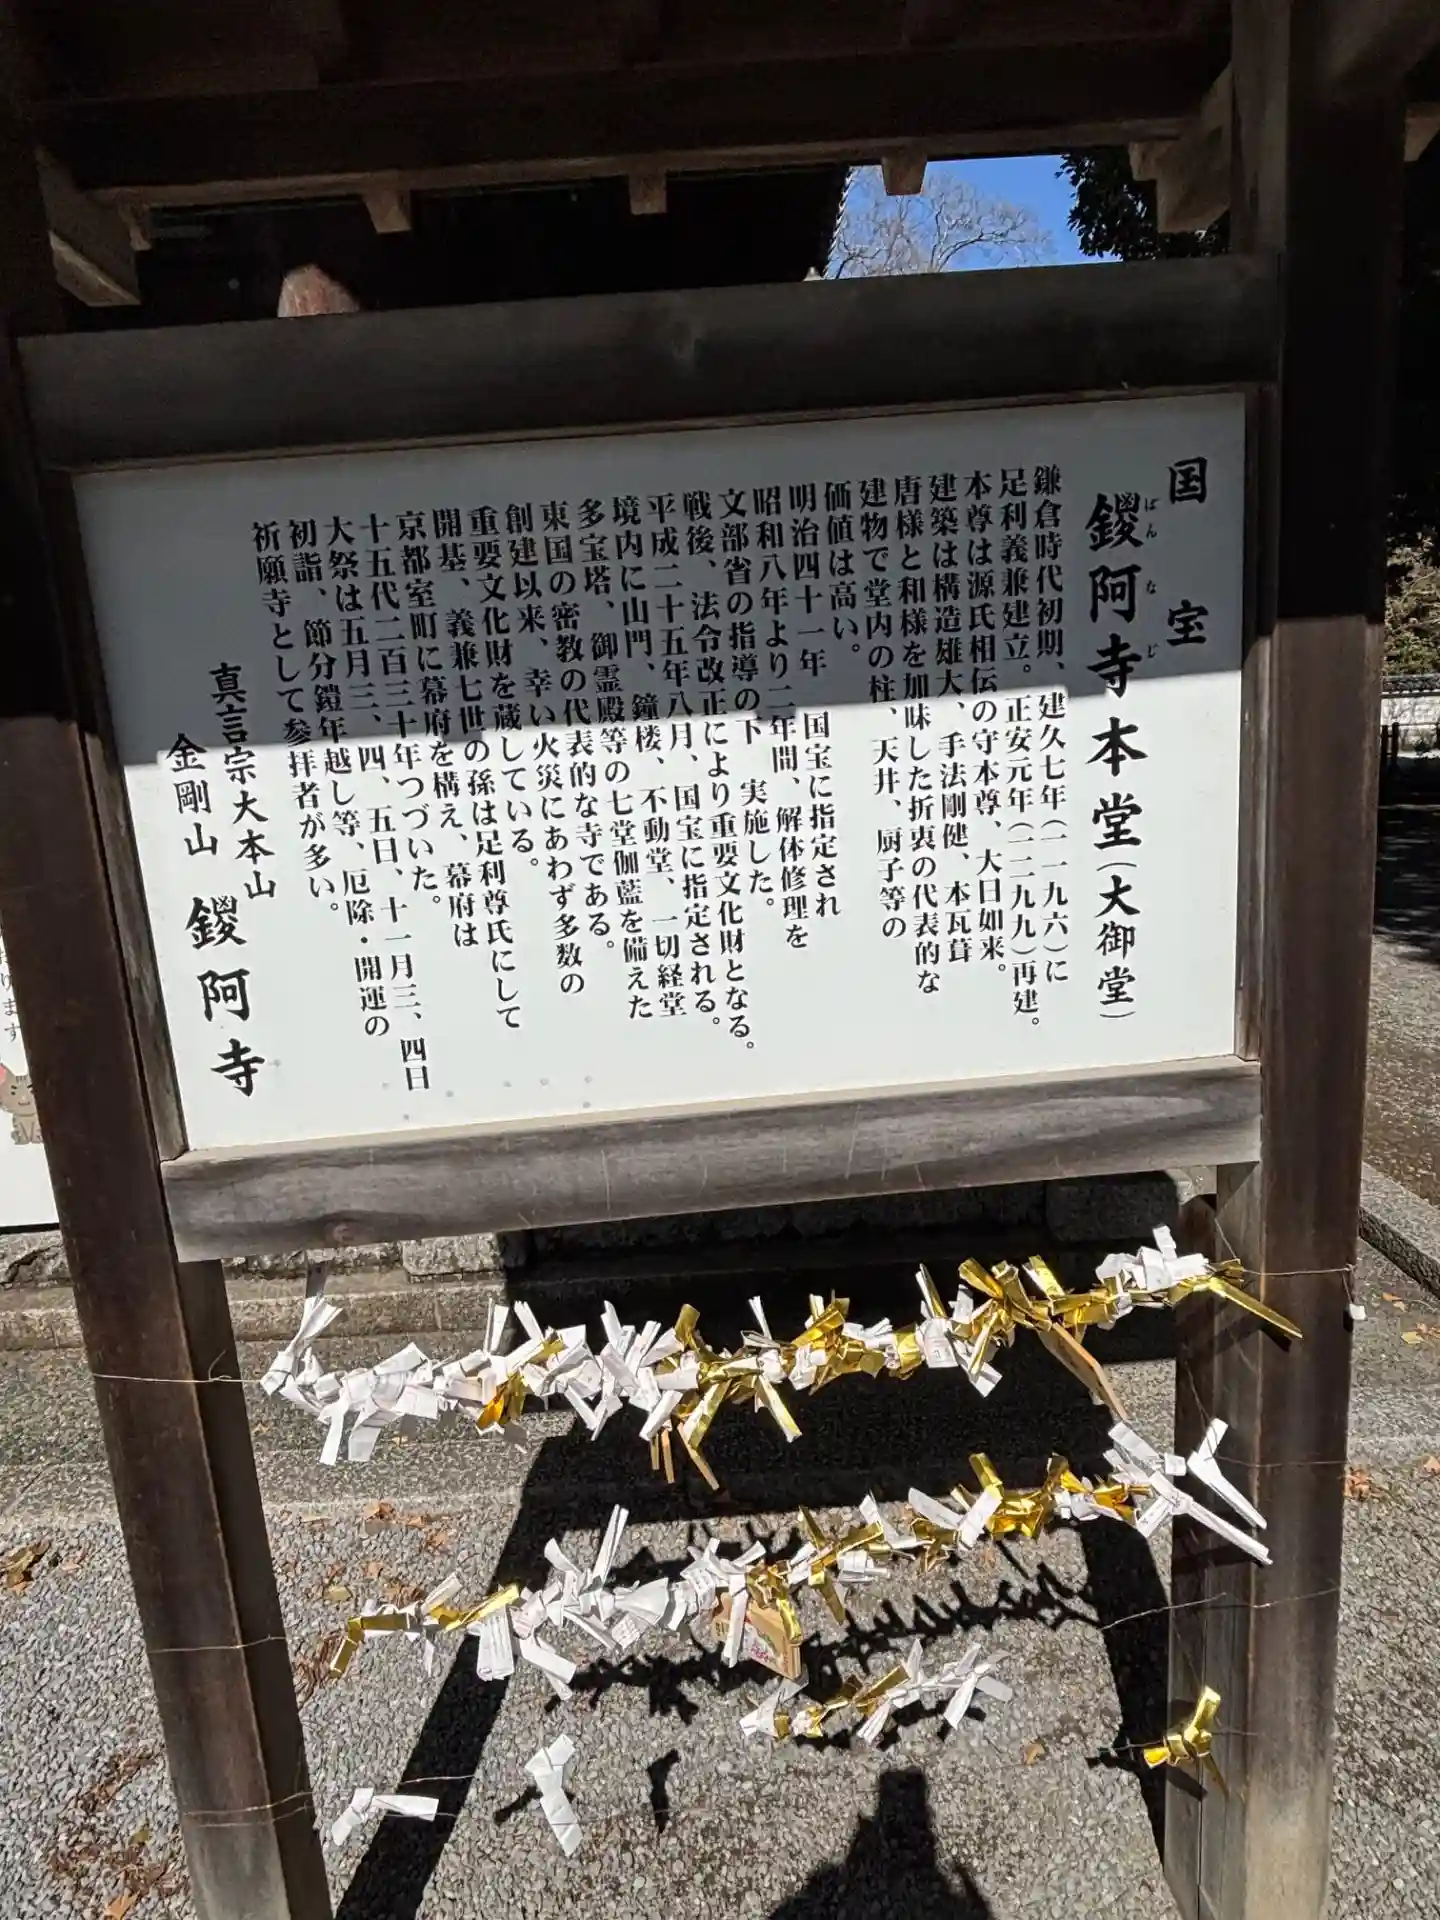 国宝
鑁阿寺本堂(大御堂)
ばんなじ
鎌倉時代初期、建久七年(一一九六)に
足利義兼建立。正安元年(一二九九)再建。
本尊は源氏相伝の守本尊、大日如来。
建築は構造雄大、手法剛健、本瓦葺
唐様と和様を加味した折衷の代表的な
建物で堂内の柱、天井、厨子等の
価値は高い。
明治四十一年 国宝に指定され
昭和八年より二年間、解体修理を
文部省の指導の下 実施した。
戦後、法令改正により重要文化財となる。
平成二十五年八月、国宝に指定される。
境内に山門、鐘楼、不動堂、一切経堂
多宝塔、御霊殿等の七堂伽藍を備えた
東国の密教の代表的な寺である。
創建以来、幸い火災にあわず多数の
重要文化財を蔵している。
開基、義兼七世の孫は足利尊氏にして
京都室町に幕府を構え、幕府は
十五代二百三十年つづいた。
大祭は五月三、四、五日、十一月三、四日
初詣、節分鎧年越し等、厄除・開運の
祈願寺として参拝者が多い。
真言宗大本山
金剛山 鑁阿寺
ります